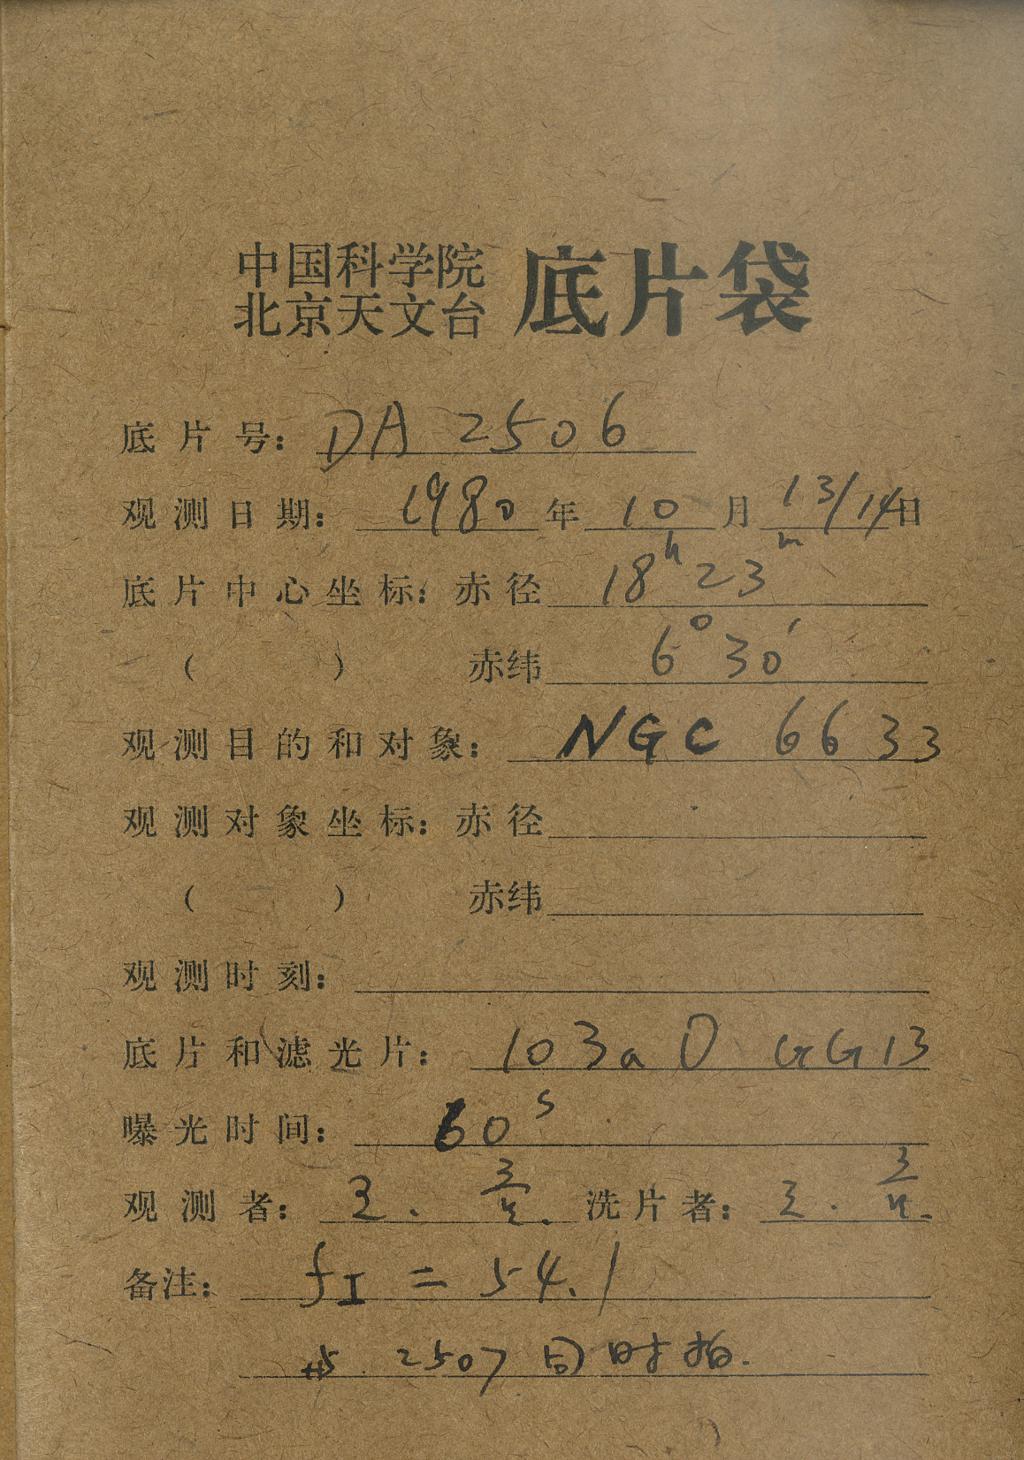 中国科学院
北京天文台
底片袋
底片号: DA 2506
观测日期: 1980 年 10 月 13/14 日
底片中心坐标: 赤径 18ʰ 23ᵐ
( ) 赤纬 6° 30′
观测目的和对象: NGC 6633
观测对象坐标: 赤径
( ) 赤纬
观测时刻:
底片和滤光片: 103a O GG13
曝光时间: 60ˢ
观测者: 洗片者:
备注: fI = 54.1
2507 同时拍.